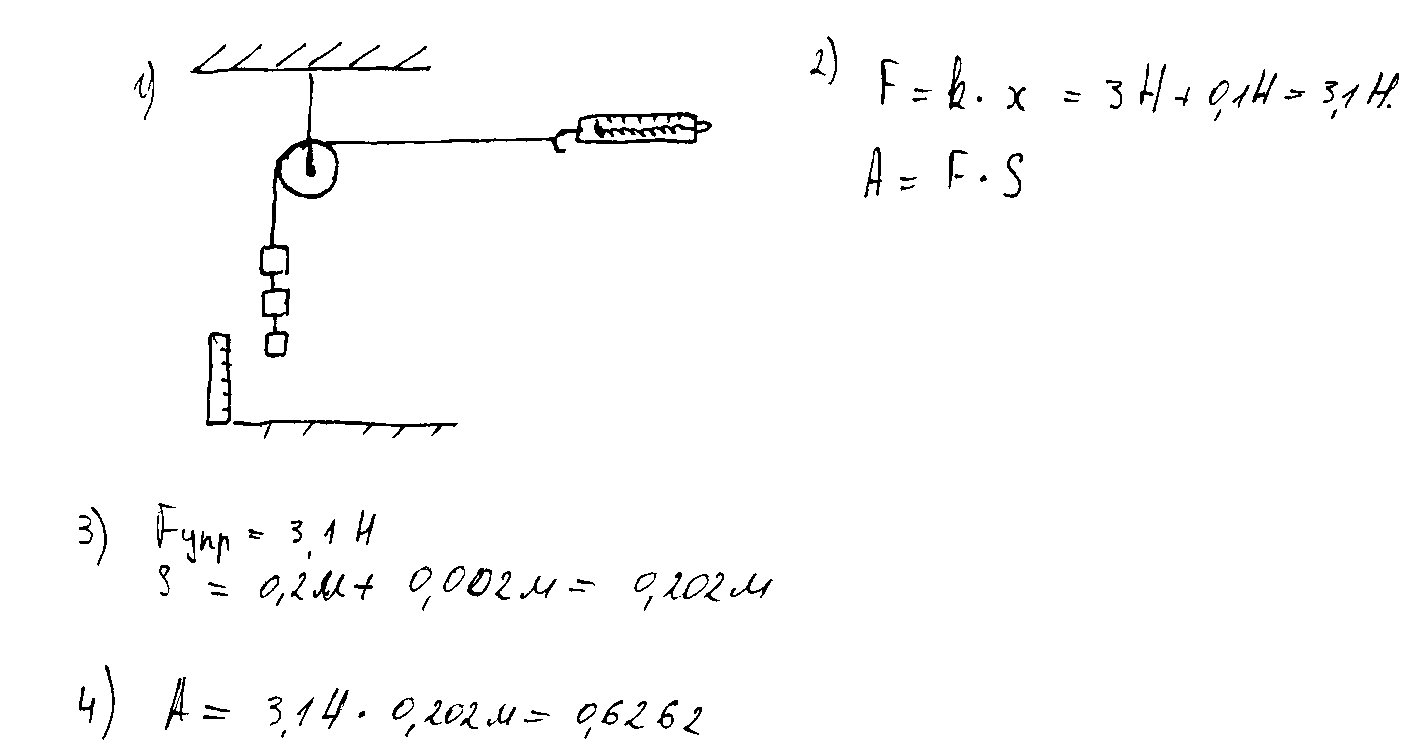 1)
2) F = k · x = 3 Н + 0,1Н = 3,1 Н.
A = F · S
3) Fупр = 3,1 Н
S = 0,2м + 0,002м = 0,202м
4) A = 3,1Н · 0,202м = 0,6262